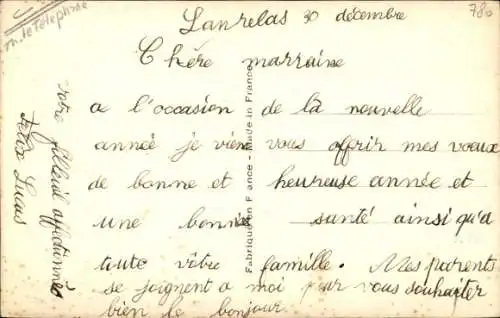 Lanrelas 30 décembre
Chére marraine
a l'occasion de la nouvelle
anneé je viens vous offrir mes voeux
de bonne et heureuse année et
une bonne santé ainsi qu'a
tute vôtre famille. Mes parents
se joignent a moi pur vous souhaiter
bien le bonjour.
votre filleul affectionnés
Felix Lucas
Fabriqué en France - Made in France
780